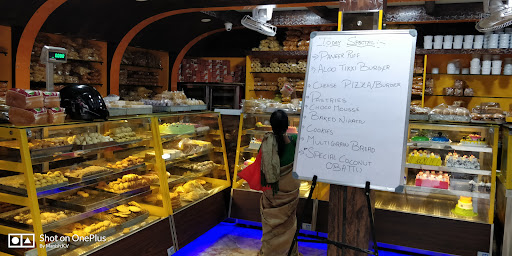 Today Special
Paneer Puff
Aloo Tikki Burger
Cheese Pizza/Burger
Pastries
Choco Mousse
Baked Nigers
Cookies
Multigrain Bread
Special Coconut
Shot on OnePlus